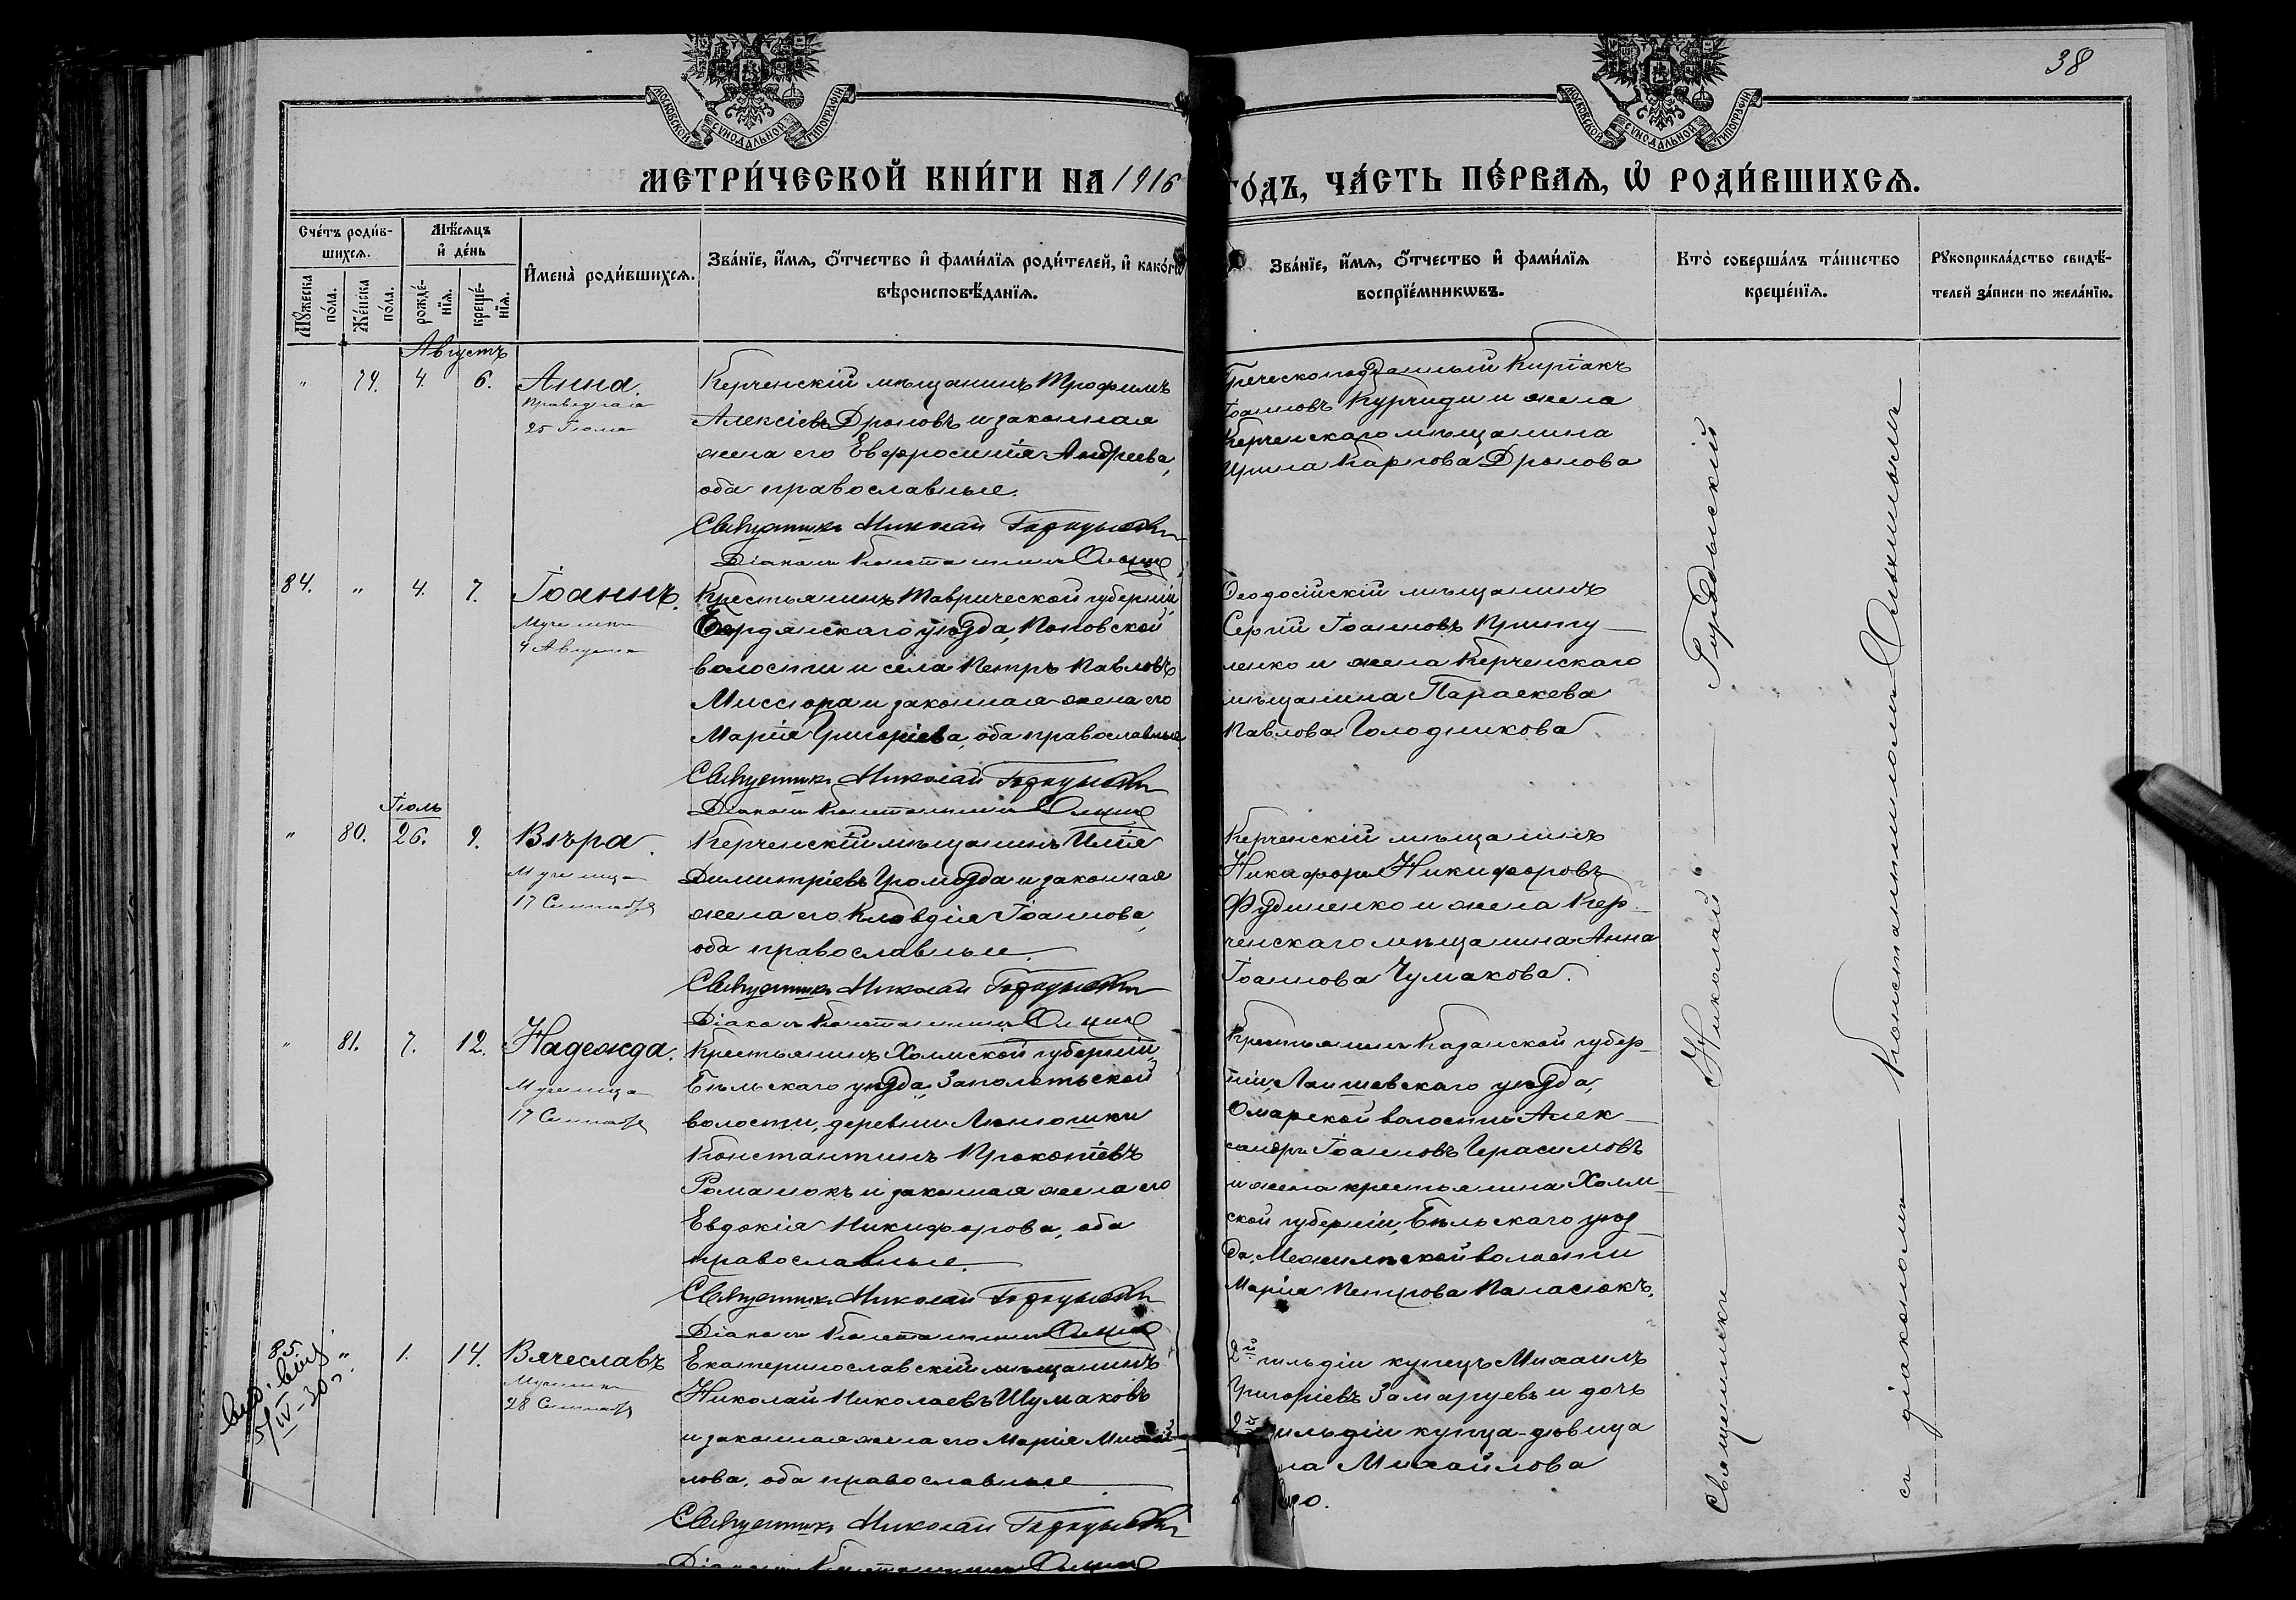 38
МОСКОВСКОЙ СУНОДАЛЬНОЙ ТИПОГРАФІИ
МОСКОВСКОЙ СУНОДАЛЬНОЙ ТИПОГРАФІИ
МЕТРИ́ЧЕСКОЙ КНИ́ГИ НА 1916
ГО́ДЪ, ЧА́СТЬ ПЕ́РВАѦ, Ѡ҆ РОДИ́ВШИХСѦ.
Сче́тъ роди́в-
шихсѧ.
Мꙋ́жеска по́ла.
Же́нска по́ла.
Мѣ́сѧцъ
и҆ де́нь
рожде́-нїѧ.
креще́-нїѧ.
И҆мена̀ роди́вшихсѧ.
Зва́нїе, и҆́мѧ, о҆́тчество и҆ фами́лїѧ роди́телей, и҆ како́гѡ
вѣроисповѣ́данїѧ.
Зва́нїе, и҆́мѧ, о҆́тчество и҆ фами́лїѧ
воспрїе́мникѡвъ.
Кто̀ соверша́лъ та́инство
креще́нїѧ.
Рꙋкоприкла́дство свидѣ́-
телей за́писи по жела́нїю.
Августъ
" 79. 4. 6. Анна.
Праведная
25 Іюля
Керченскій мѣщанинъ Трофимъ
Алексіевъ Дроновъ и законная
жена его Евфросинія Андреева,
оба православные.
Священникъ Николай
Діаконъ Константинъ
Греческоподданный Киріакъ
Іоанновъ Курчиди и жена
Керченскаго мѣщанина
Ирина Карпова Дронова
84. " 4. 7. Іоаннъ.
Мученикъ
4 Августа
Крестьянинъ Таврической губерніи,
Бердянскаго уѣзда, Поповской
волости и села Петръ Павловъ
Миссюра и законная жена его
Марія Григоріева, оба православные
Священникъ Николай
Діаконъ Константинъ
Ѳеодосійскій мѣщанинъ
Сергій Іоанновъ Припу-
ленко и жена Керченскаго
мѣщанина Параскева
Павлова Голодникова
Іюль
" 80. 26. 9. Вѣра.
Мученица
17 Сентября
Керченскій мѣщанинъ Илія
Димитріевъ Громозда и законная
жена его Клавдія Іоаннова,
оба православные.
Священникъ Николай
Діаконъ Константинъ
Керченскій мѣщанинъ
Никифоръ Никифоровъ
и жена Кер-
ченскаго мѣщанина Анна
Іоаннова Чумакова.
" 81. 7. 12. Надежда.
Мученица
17 Сентября
Крестьянинъ Холмской губерніи,
Бѣльскаго уѣзда,
волости, деревни Люнюшки
Константинъ Прокопіевъ
Романюкъ и законная жена его
Евдокія Никифорова, оба
православные.
Священникъ Николай
Діаконъ Константинъ
Крестьянинъ Казанской губер-
ніи, Лаишевскаго уѣзда,
Омарской волости Алек-
сандръ Іоанновъ Герасимовъ
и жена крестьянина Холм-
ской губерніи, Бѣльскаго уѣз-
да, волости
Марія Петрова Панасюкъ.
85. " 1. 14. Вячеславъ
Мученикъ
28 Сентября
5/IV-30 г.
Екатеринославскій мѣщанинъ
Николай Николаевъ Шумаковъ
и законная жена его Марія Михай-
лова, оба православные.
Священникъ Николай
Діаконъ Константинъ
2й гильдіи купецъ Михаилъ
Григоріевъ Замаруевъ и дочь
2й гильдіи купца-дѣвица
Михайлова
Священникъ Николай
съ діакономъ Константиномъ